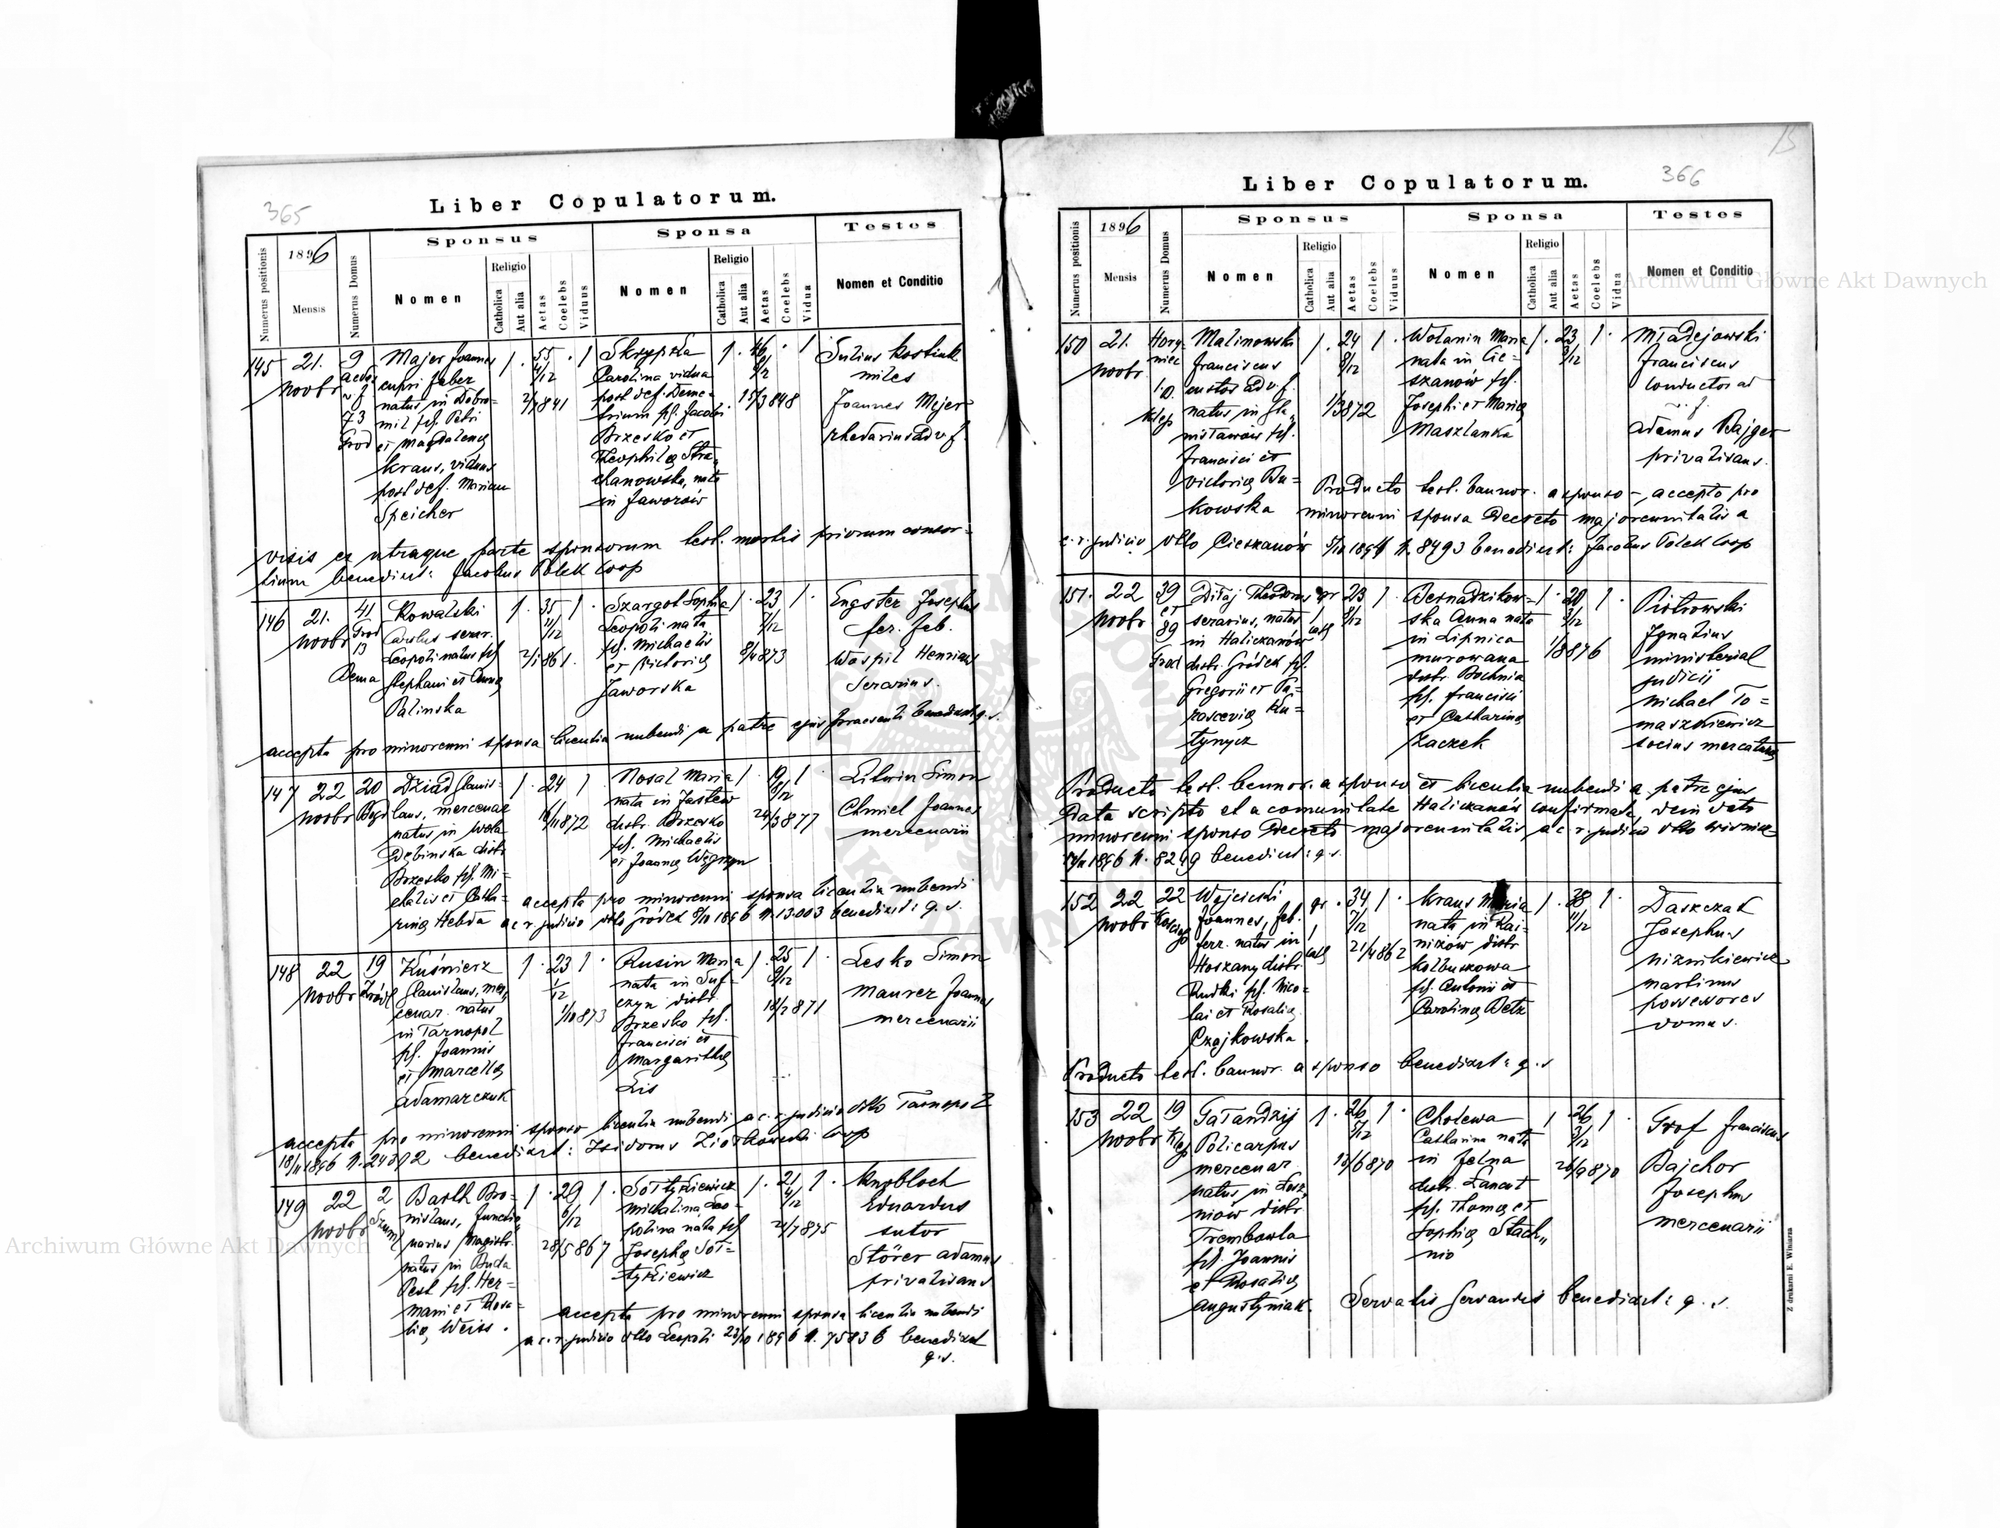 Archiwum Główne Akt Dawnych
365
Liber Copulatorum.
Numerus positionis
1896
Mensis
Numerus Domus
Sponsus
Nomen
Religio
Catholica
Aut alia
Aetas
Coelebs
Viduus
Sponsa
Nomen
Religio
Catholica
Aut alia
Aetas
Coelebs
Vidua
Testes
Nomen et Conditio
145
21.
Novbr
9
73
Grod
Majer Joannes
cupri faber
natus in Dobro-
mil fil. Petri
et Magdalenę
Kraus, viduus
post def. Mariam
Speicher
1.
55
4/12
2/7 841
1
Skrypła
Carolina vidua
post def. Deme-
trium fil. Jacobi
Brzesko et
Theophilę Stra-
chanowska, nata
in Jaworów
1.
15/3 848
1
Julius Kostiuk
miles
Joannes Mejer
rhedarius ad v. f.
visis ex utraque parte sponsorum test. mortis priorum consor-
tium benedixit: Jacobus Polek Coop
146
21.
Novbr
41
Grod
13
Bema
Kowalski
Carolus serar.
Leopoli natus fil
Stephani et Annę
Balinska
1.
35
11/12
2/1 861.
1.
Szargot Sophia
Leopoli nata
fil. Michaelis
et Victorię
Jaworska
1.
23
7/12
8/4 873
1.
Engster Josephus
fer. feb.
Waspil Henricus
Serarius.
accepta pro minorenni sponsa licentia nubendi a patre ejus praesenti benedixit q. s.
147
22
Novbr
20
Bogd
Dziad Stanis-
laus, mercenar
natus in Wola
Dębinska distr
Brzesko fil. Mi-
chaelis et Catha-
rinę Hebda
1.
24
16/11 872
1
Nosal Maria
nata in Jastew
distr. Brzesko
fil. Michaelis
et Joannę Węgrzyn
1.
19
8/12
24/3 877
1.
Litwin Simon
Chmiel Joannes
mercenarii
accepta pro minorenni sponsa licentia nubendi
a c. r. judicio dtto Gródek 8/11 1896 N. 13.003 benedixit: q. s.
148
22
Novbr
19
Źródl
Kuśnierz
Stanislaus, mer-
cenar. natus
in Tarnopol
fil. Joannis
et Marcellę
Adamarczuk
1.
23
1/12
1/10 873
1.
Rusin Maria
nata in Suf-
czyn distr
Brzesko fil.
Francisci et
Margarithę
Lis
1.
25
9/12
18/2 871
1.
Lesko Simon
Maurer Joannes
mercenarii
accepta pro minorenni sponso licentia nubendi a c. r. judicio dtto Tarnopol
18/11 1896 N. 24392 benedixit: Isidorus Ziołkowski Coop
149
22
Novbr
2
Szuml
Barth Bro-
nislaus, functio-
narius Magistr.
natus in Buda
Pest fil. Her-
mani et Rosa-
lię, Weiss.
1.
29
6/12
28/5 867
1.
Sołtykiewicz
Michalina Leo-
polina nata fil
Josephę Soł-
tykiewicz
1.
21
4/12
24/7 875
1.
Knobloch
Eduardus
sutor
Störer Adamus
privatisans
accepta pro minorenni sponsa licentia nubendi
a c. r. judicio dtto Leopoli 23/10 1896 N. 75836 benedixit
q. s.
366
Liber Copulatorum.
Numerus positionis
1896
Mensis
Numerus Domus
Sponsus
Nomen
Religio
Catholica
Aut alia
Aetas
Coelebs
Viduus
Sponsa
Nomen
Religio
Catholica
Aut alia
Aetas
Coelebs
Vidua
Testes
Nomen et Conditio
150
21.
Novbr
Hory-
niec
Klep
Malinowski
Franciscus
custos ad v. f.
natus in Sta-
nisławów fil.
Francisci et
Victorię Bu-
kowska
1.
24
8/12
1/3 872
1.
Wołanin Maria
nata in Cie-
szanów fil.
Josephi et Marię
Maszlanka
1.
23
3/12
1.
Mładejowski
Franciscus
conductor ad
v. f.
Adamus Bajger
privatisans.
Producto test. bannor. a sponso -, accepto pro
minorenni sponsa Decreto majorennitatis a
c. r. judicio dtto Cieszanów N. 8493 benedixit: Jacobus Polek Coop
151.
22
Novbr
39
et
89
Grod
Diłaj Theodorus
serarius, natus
in Haliczanów
distr. Gródek fil.
Gregorii et Pa-
rascevię Ku-
tynycz
gr
cath
23
8/12
1.
Bernadzikow-
ska Anna nata
in Lipnica
murowana
distr. Bochnia
fil. Francisci
et Catharinę
Kaczek
1.
20
3/12
1/8 876
1.
Piotrowski
Ignatius
ministerial
judicij
Michael To-
maszkiewicz
socius mercatura
Producto test. bannor. a sponso et licentia nubendi a patre ejus
data scripto et a comunitate Haliczanów confirmata, dein dato
minorenni sponso Decreto majorennitatis a c. r. judicio dtto
1896 N. 8249 benedixit: q. s.
152
22
Novbr
22
Wojcicki
Joannes, feb.
ferr. natus in
Hoszany distr.
Rudki fil. Nico-
lai et Rosalię
Czajkowska.
gr.
cath
34
7/12
21/4 862
1.
Kraus Maria
nata in Rai-
nizów distr
Kolbuszowa
fil. Antoni et
Carolinę Betz
1.
38
11/12
1.
Daszczak
Josephus
Niznikiewicz
Martinus
possessores
domus.
Producto test. bannor. a sponso benedixit: q. s
153
22
Novbr
19
Klep
Gałandzij
Policarpus
mercenar.
natus in Łosz-
niów distr.
Trembowla
fil. Joannis
et Rosalię
Augustyniak.
1.
26
5/12
18/6 870
1.
Cholewa
Catharina nata
in Jelna
distr. Łancut
fil. Thomę et
Sophię Stach-
nio
1
26
3/12
26/9 870
1.
Grof Franciscus
Bajchor
Josephus
mercenarii
Servatis servandis benedixit: q. s.
Z drukarni E. Winiarza
Archiwum Główne Akt Dawnych